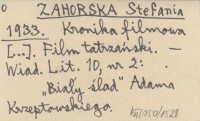 0 ZAHORSKA Stefania
1933. Kronika filmowa
[...]. Film tatrzański. —
Wiad. Lit. 10, nr 2:
„Biały ślad" Adama
Krzeptowskiego.